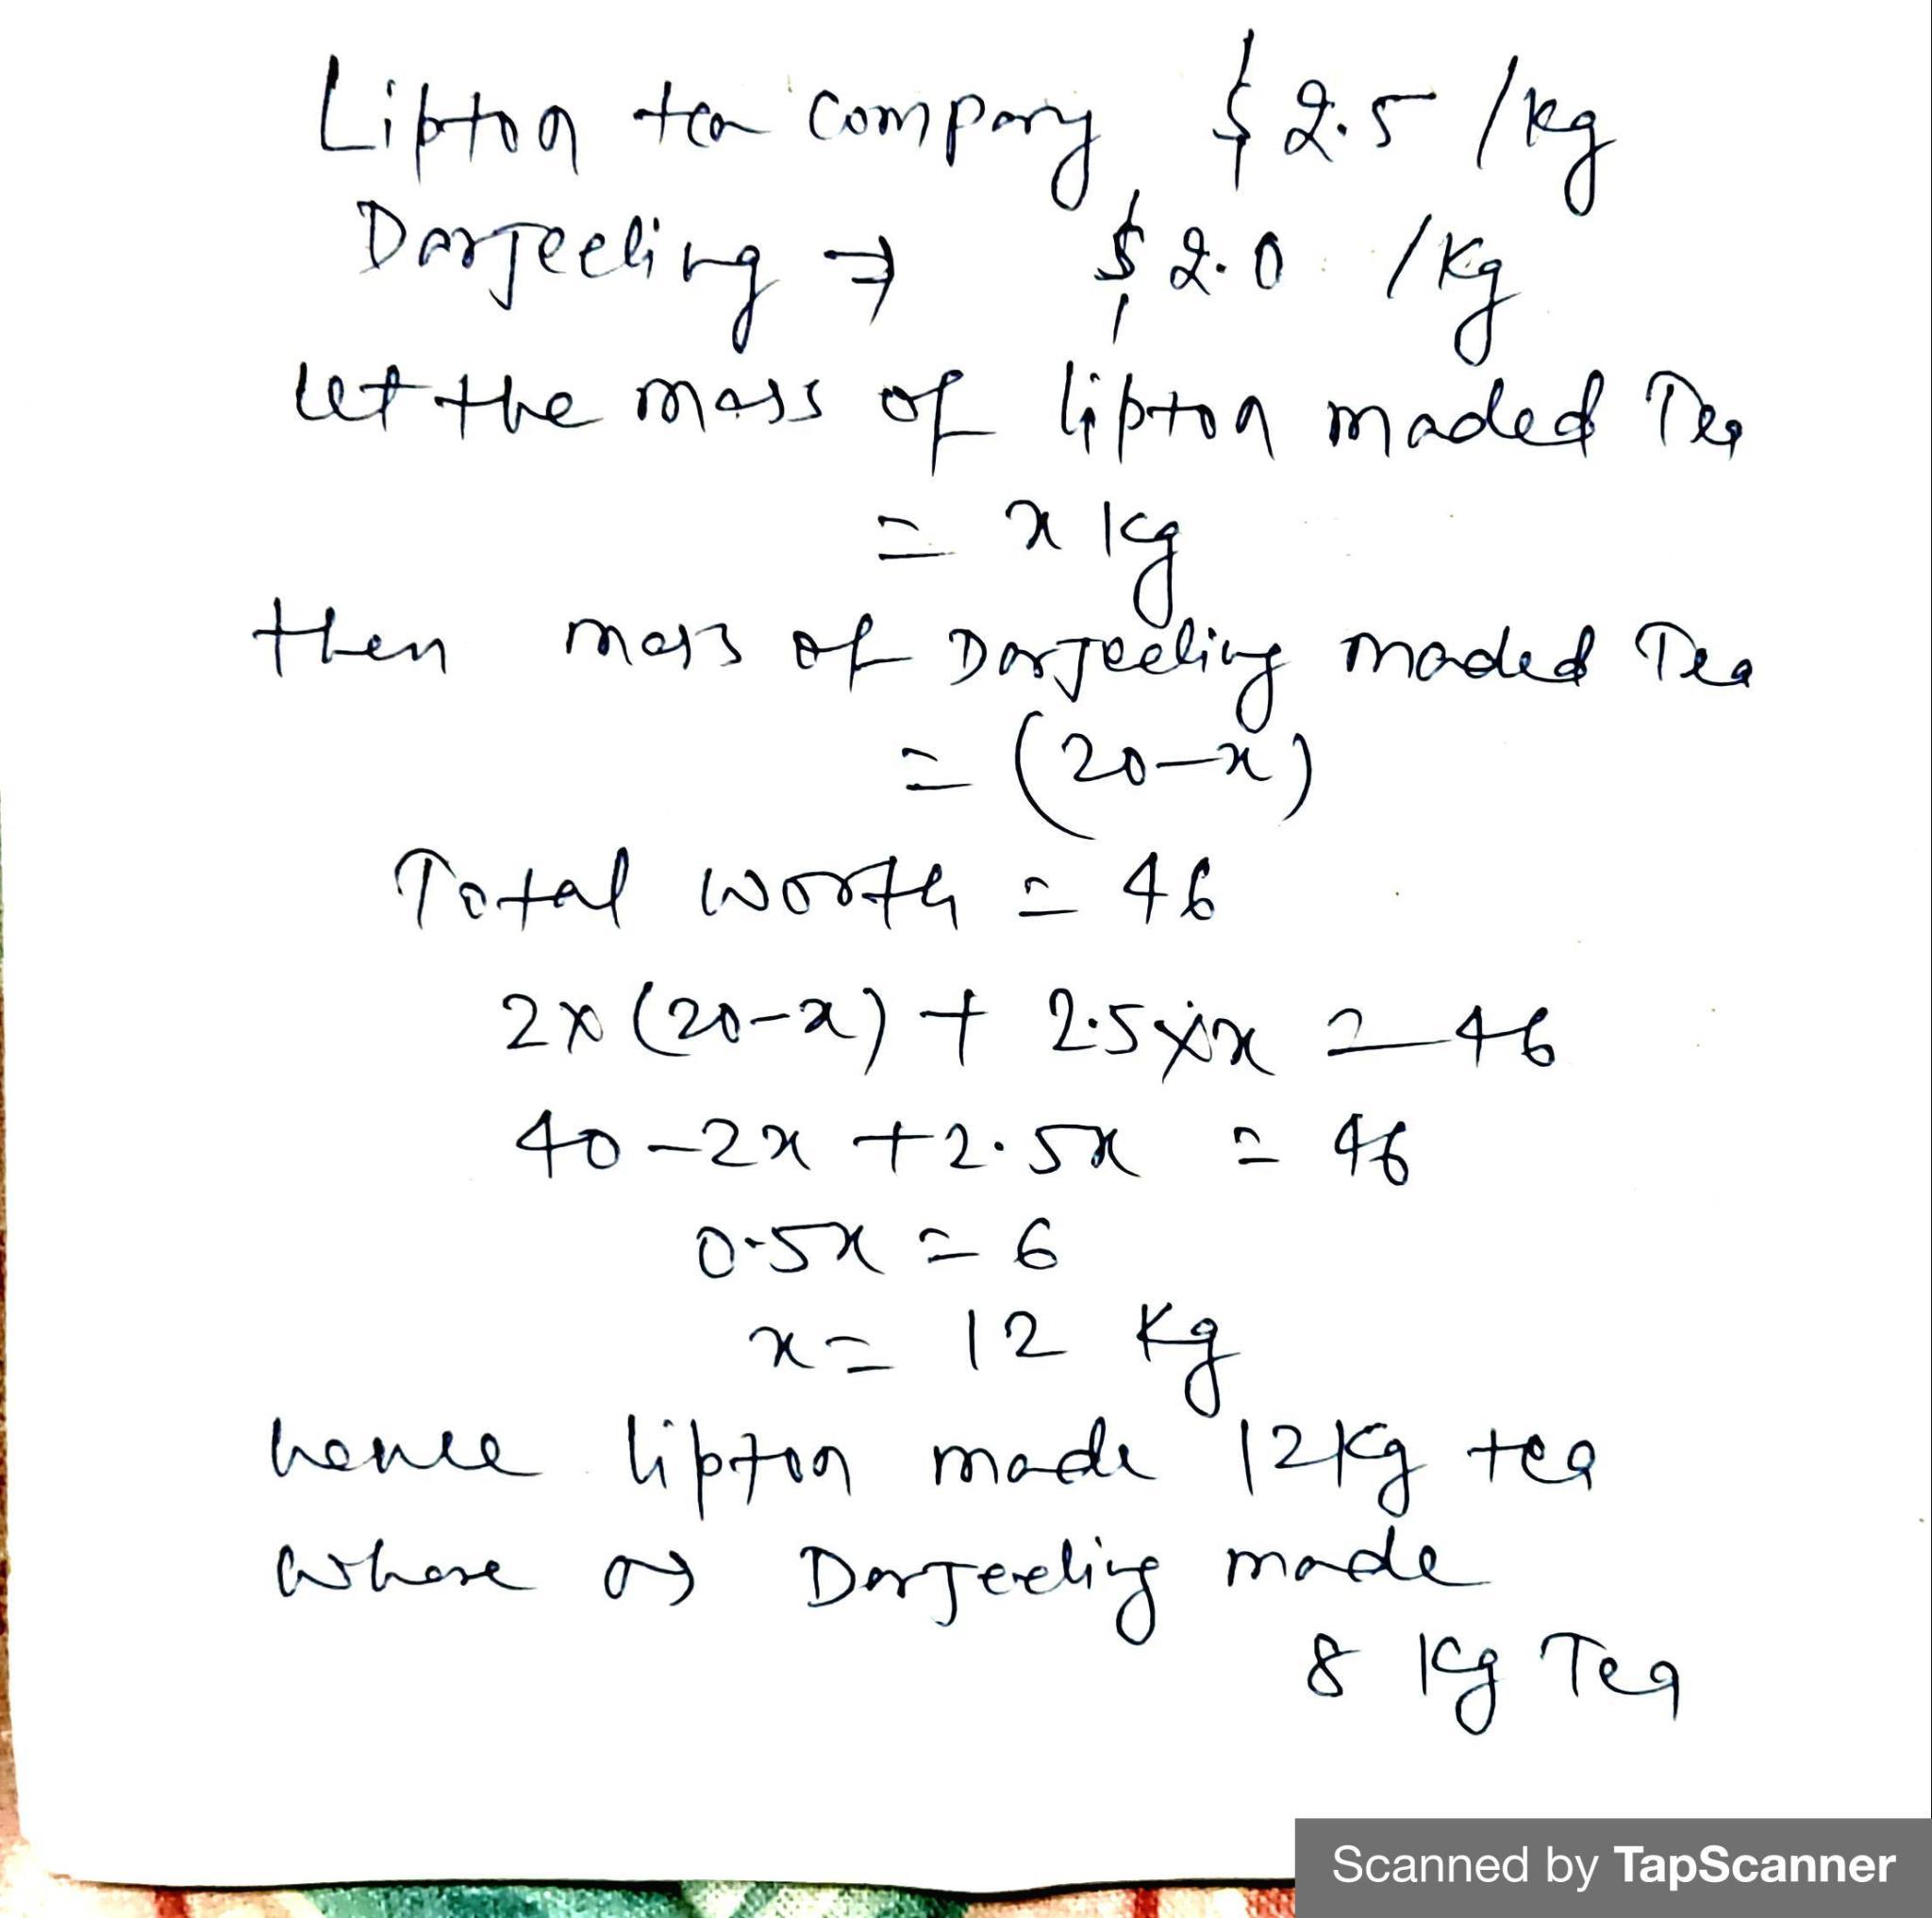 Lipton tea company $ 2.5 /kg
Darjeeling → $ 2.0 /kg
let the mass of lipton maded Tea
= x kg
then mass of Darjeeling maded Tea
= (20-x)
Total worth = 46
2×(20-x) + 2.5×x = 46
40-2x +2.5x = 46
0.5x = 6
x = 12 kg
hence lipton made 12kg tea
where as Darjeeling made
8 kg Tea
Scanned by TapScanner